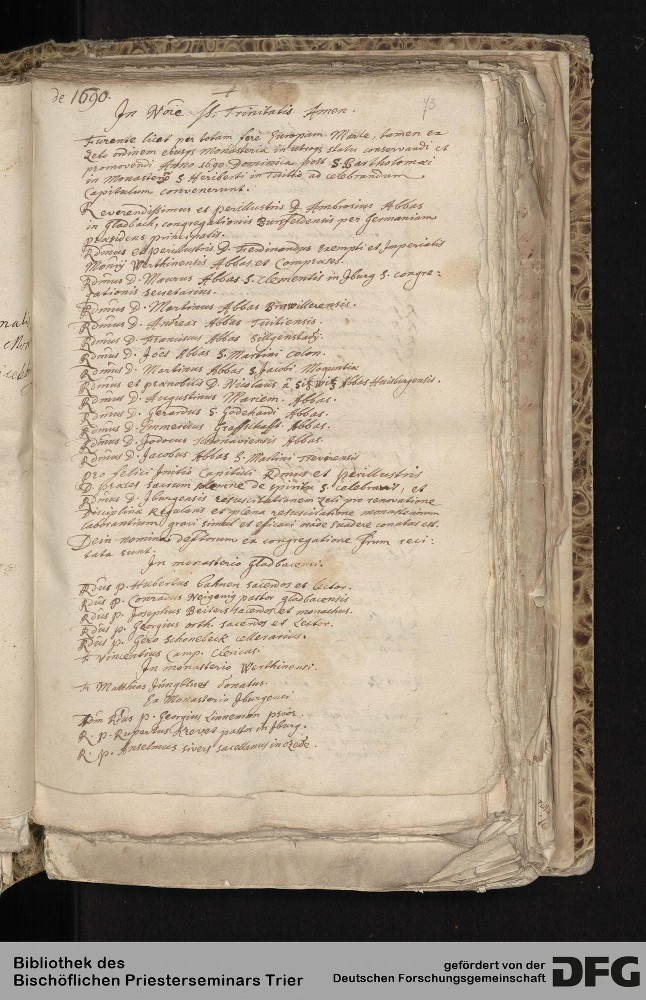 de 1690.
73
In Noīe SS. Trinitatis Amen.
Furente licet per totam ferè Europam Marte, tamen ex
zelo ordinem eiusq monasteria in utroq statu conservandi et
promovendi Anno 1690 Dominica post S. Bartholomæi
in Monasterio S. Heriberti in Tuitio ad celebrandum
Capitulum convenerunt.
Reverendissimus et perillustris D. Ambrosius Abbas
in Gladbach, congregationis Bursfeldensis per Germaniam
præsidens principalis.
Rdmus et perillustris D. Ferdinandus exempti et Imperialis
Monrÿ Werthinensis Abbas et Compræses.
Rdmus D. Maurus Abbas S. Clementis in Iburg S. congre:
gationis secretarius.
Rdmus D. Martinus Abbas Brawillerensis.
Rdmus D. Andreas Abbas Tuitiensis.
Rdmus D. Franciscus Abbas
Rdmus D. Joēs Abbas S. Martini Colon.
Rdmus D. Martinus Abbas S. Jacobi Moguntiæ
Rdmus et prænobilis D. Nicolaus à Sitzwitz Abbas Huisburgensis.
Rdmus D. Augustinus Mariem. Abbas.
Rdmus D. Gerardus S. Godehardi Abbas.
Rdmus D. Emmericus Graffschaff. Abbas.
Rdmus D. Jodocus Schonaviensis Abbas.
Rdmus D. Jacobus Abbas S. Martini Treverensis
Pro felici Initio Capituli Rdmus et perillustris
D. præses sacrum solenne de spiritu S. celebravit, et
Rdmus D. Iburgensis resuscitationem zeli pro renovatione
Disciplinæ Regularis et plena resuscitatione monasteriorum
laborantium gravi simul et efficaci orāōe suadere conatus est.
Dein nomina defctorum ex congregatione Frum reci:
tata sunt.
In monasterio Gladbacensi.
Rdus P. Hubertus Cahnen sacerdos et lector.
Rdus P. Conradus Neigenig pastor gladbacensis
Rdus P. Josephus Beiters sacerdos et monachus.
Rdus P. Georgius Orth. sacerdos et Lector.
Rdus P. Gero Schonebeck cellerarius.
Fr Vincentius Camp. Clericus.
In monasterio Werthinensi.
Fr Matthias Jungblues donatus.
Ex Monasterio Iburgensi
Rdus P. Georgius Linneman prior.
R. P. Rupertus Kreves pastor in Iburg.
R. P. Anselmus sivers sacellanus in
Bibliothek des
Bischöflichen Priesterseminars Trier
gefördert von der
Deutschen Forschungsgemeinschaft
DFG